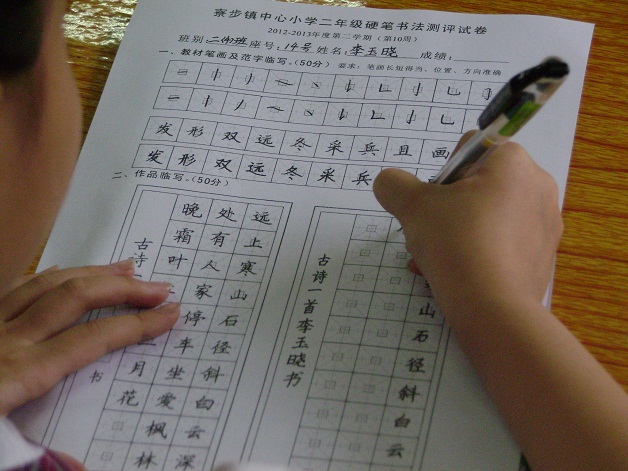 寮步镇中心小学二年级硬笔书法测评试卷
2012-2013年度第二学期（第10周）
班别: 座号: 19号 姓名: 李玉晓 成绩:
一、教材笔画及范字临写。(50分) 要求：笔画长短得当、位置、方向准确
发形双远冬采兵且画
发形双远冬采兵
二、作品临写。(50分)
远上寒山石径斜白云深
处有人家停车坐爱枫林
晚霜叶 月花
古诗 书
山石径斜白云
古诗一首李玉晓书